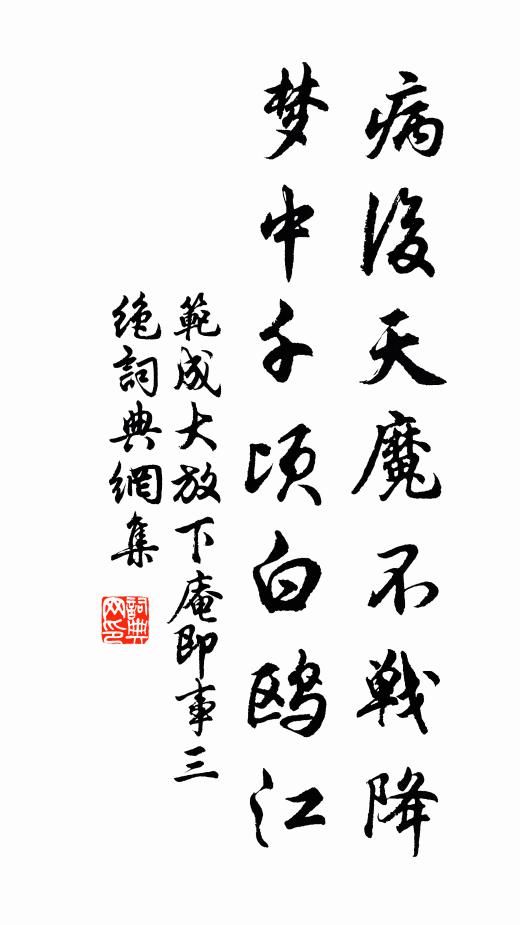 病後天魔不戰降
梦中千頃白鸥江
範成大放下庵即事三
絶詞典網集
詞典
网印